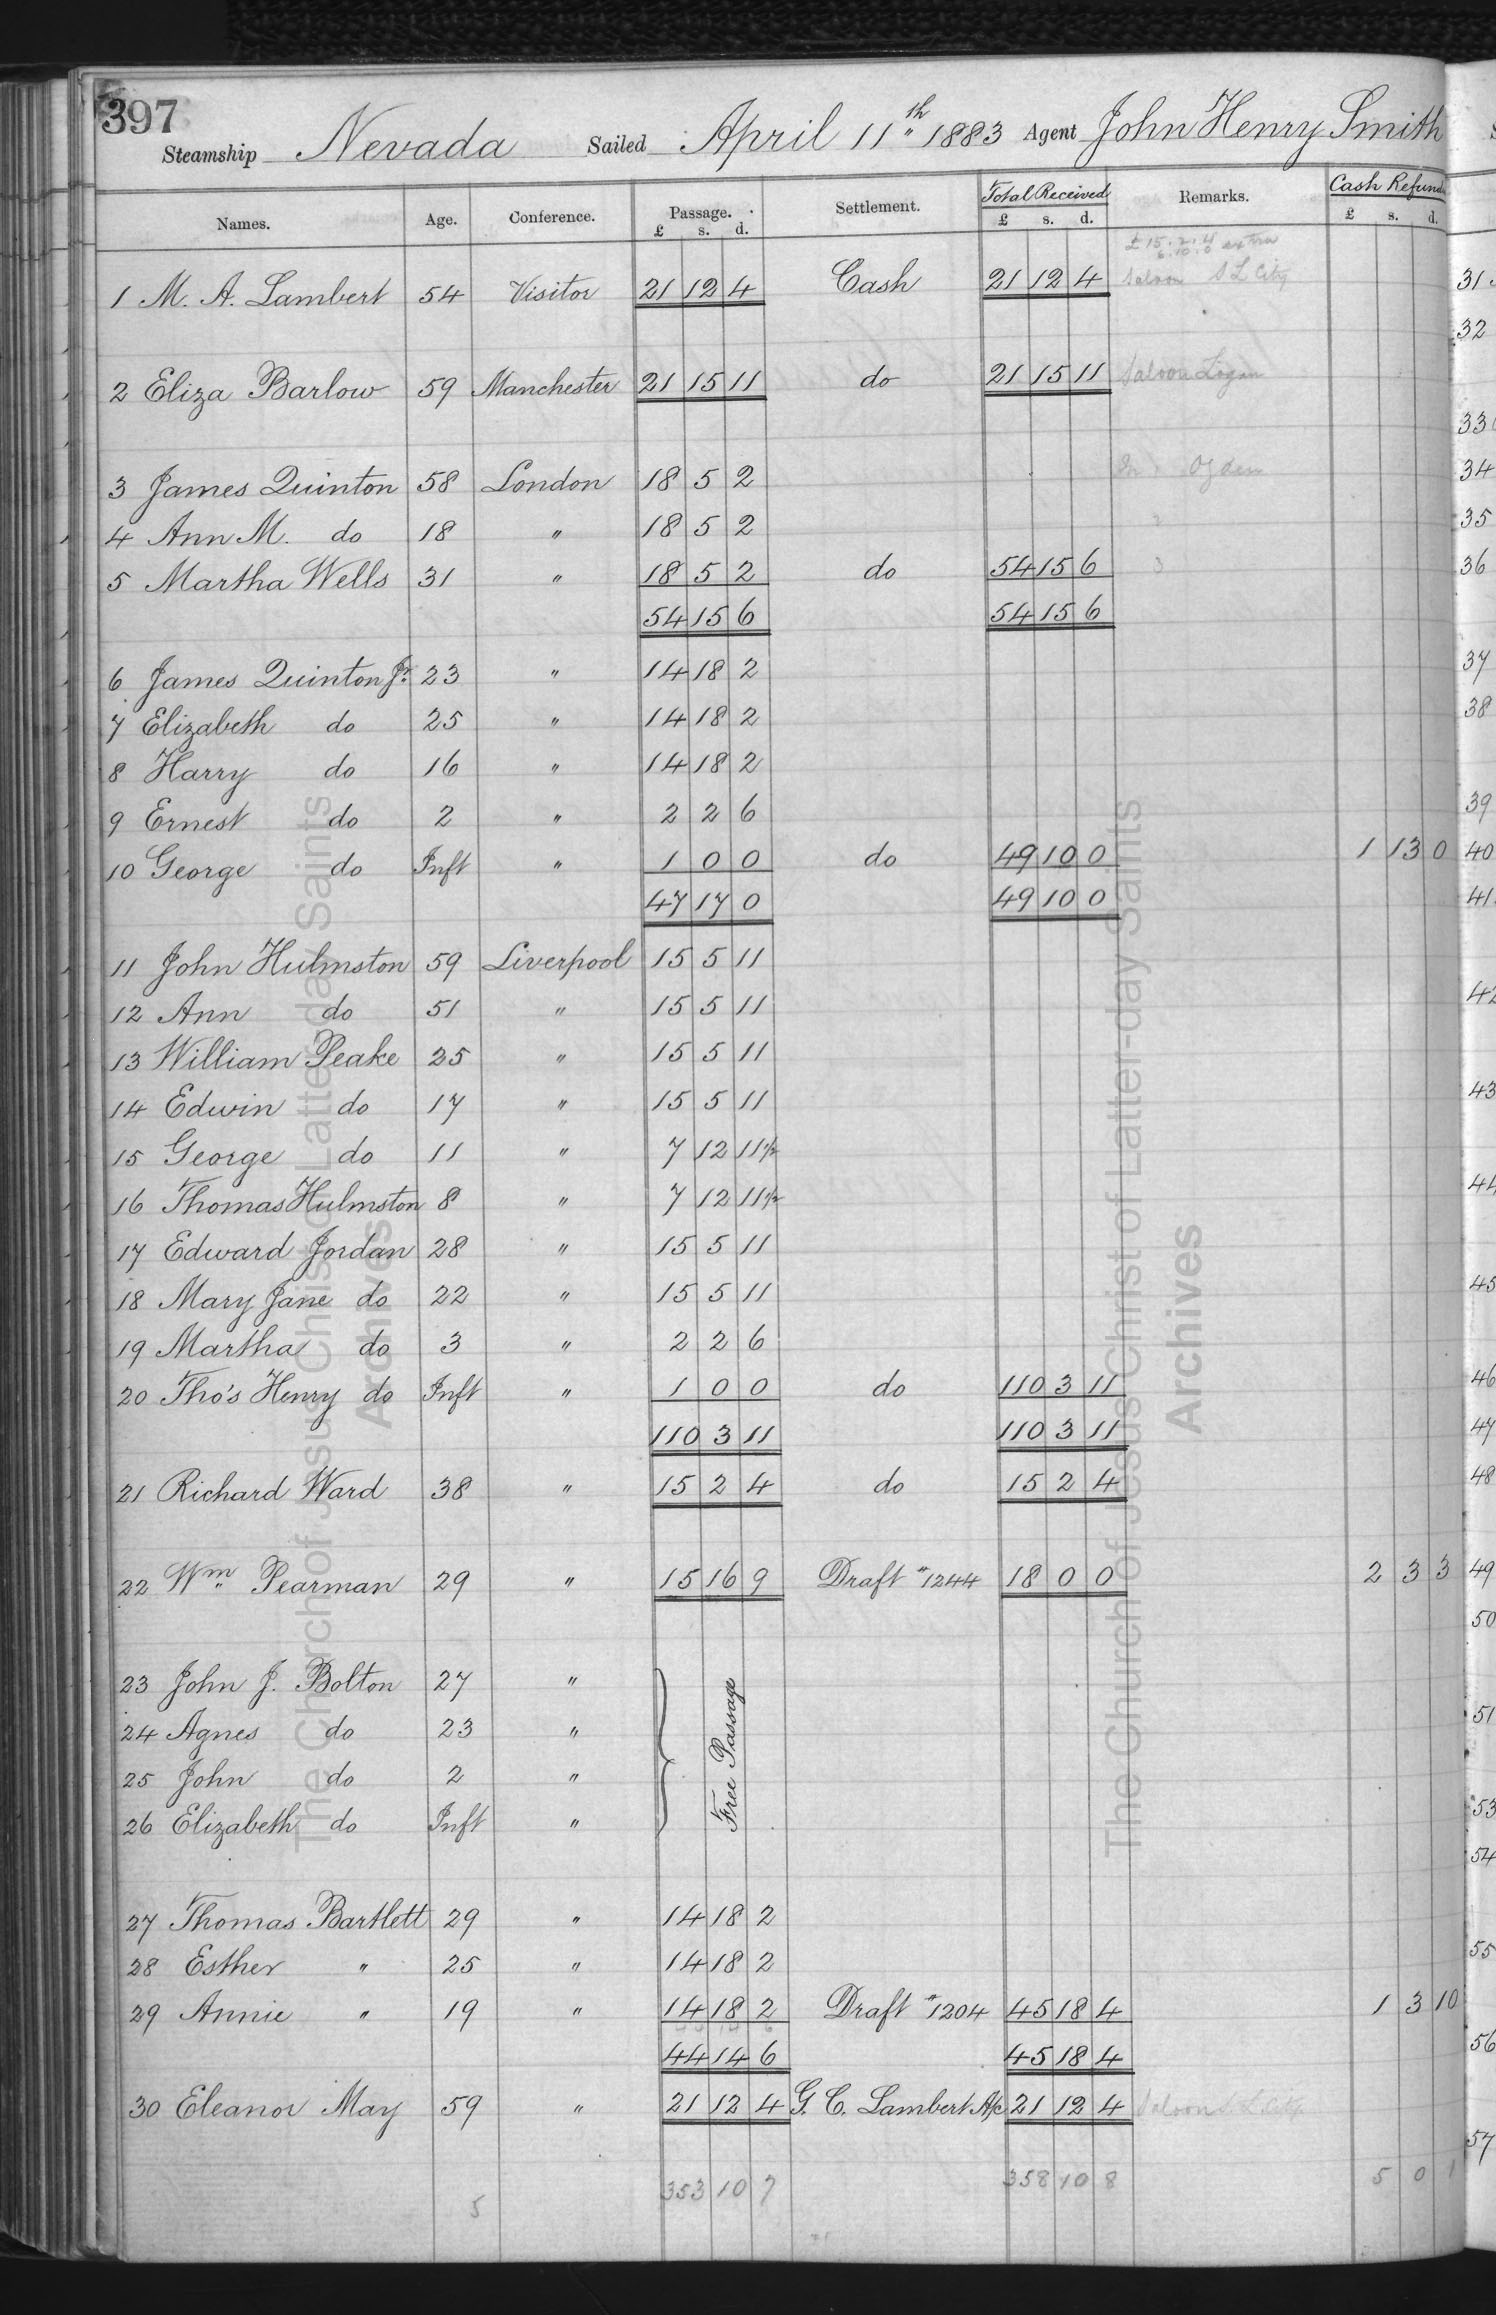 397
Steamship Nevada Sailed April 11th 1883 Agent John Henry Smith
Names. Age. Conference. Passage. £ s. d. Settlement. Total Received £ s. d. Remarks. Cash Refund £ s. d.
£15.2.4 extra
6.10.0
1 M. A. Lambert 54 Visitor 21 12 4 Cash 21 12 4 Saloon S L City
2 Eliza Barlow 59 Manchester 21 15 11 do 21 15 11 Saloon Logan
3 James Quinton 58 London 18 5 2 Ogden
4 Ann M. do 18 " 18 5 2
5 Martha Wells 31 " 18 5 2 do 54 15 6 3
54 15 6 54 15 6
6 James Quinton Jr. 23 " 14 18 2
7 Elizabeth do 25 " 14 18 2
8 Harry do 16 " 14 18 2
9 Ernest do 2 " 2 2 6
10 George do Inft " 1 0 0 do 49 10 0 1 13 0
47 17 0 49 10 0
11 John Hulmston 59 Liverpool 15 5 11
12 Ann do 51 " 15 5 11
13 William Peake 25 " 15 5 11
14 Edwin do 17 " 15 5 11
15 George do 11 " 7 12 11½
16 Thomas Hulmston 8 " 7 12 11½
17 Edward Jordan 28 " 15 5 11
18 Mary Jane do 22 " 15 5 11
19 Martha do 3 " 2 2 6
20 Tho's Henry do Inft " 1 0 0 do 110 3 11
110 3 11 110 3 11
21 Richard Ward 38 " 15 2 4 do 15 2 4
22 Wm. Pearman 29 " 15 16 9 Draft "1244 18 0 0 2 3 3
23 John J. Bolton 27 "
24 Agnes do 23 "
25 John do 2 "
26 Elizabeth do Inft "
Free Passage
27 Thomas Bartlett 29 " 14 18 2
28 Esther " 25 " 14 18 2
29 Annie " 19 " 14 18 2 Draft "1204 45 18 4 1 3 10
44 14 6 45 18 4
30 Eleanor May 59 " 21 12 4 G. C. Lambert A/c 21 12 4 Saloon S L City
5 353 10 7 358 10 8 5 0 1
The Church of Jesus Christ of Latter-day Saints
Archives
The Church of Jesus Christ of Latter-day Saints
Archives
31
32
33
34
35
36
37
38
39
40
41
42
43
44
45
46
47
48
49
50
51
53
54
55
56
57